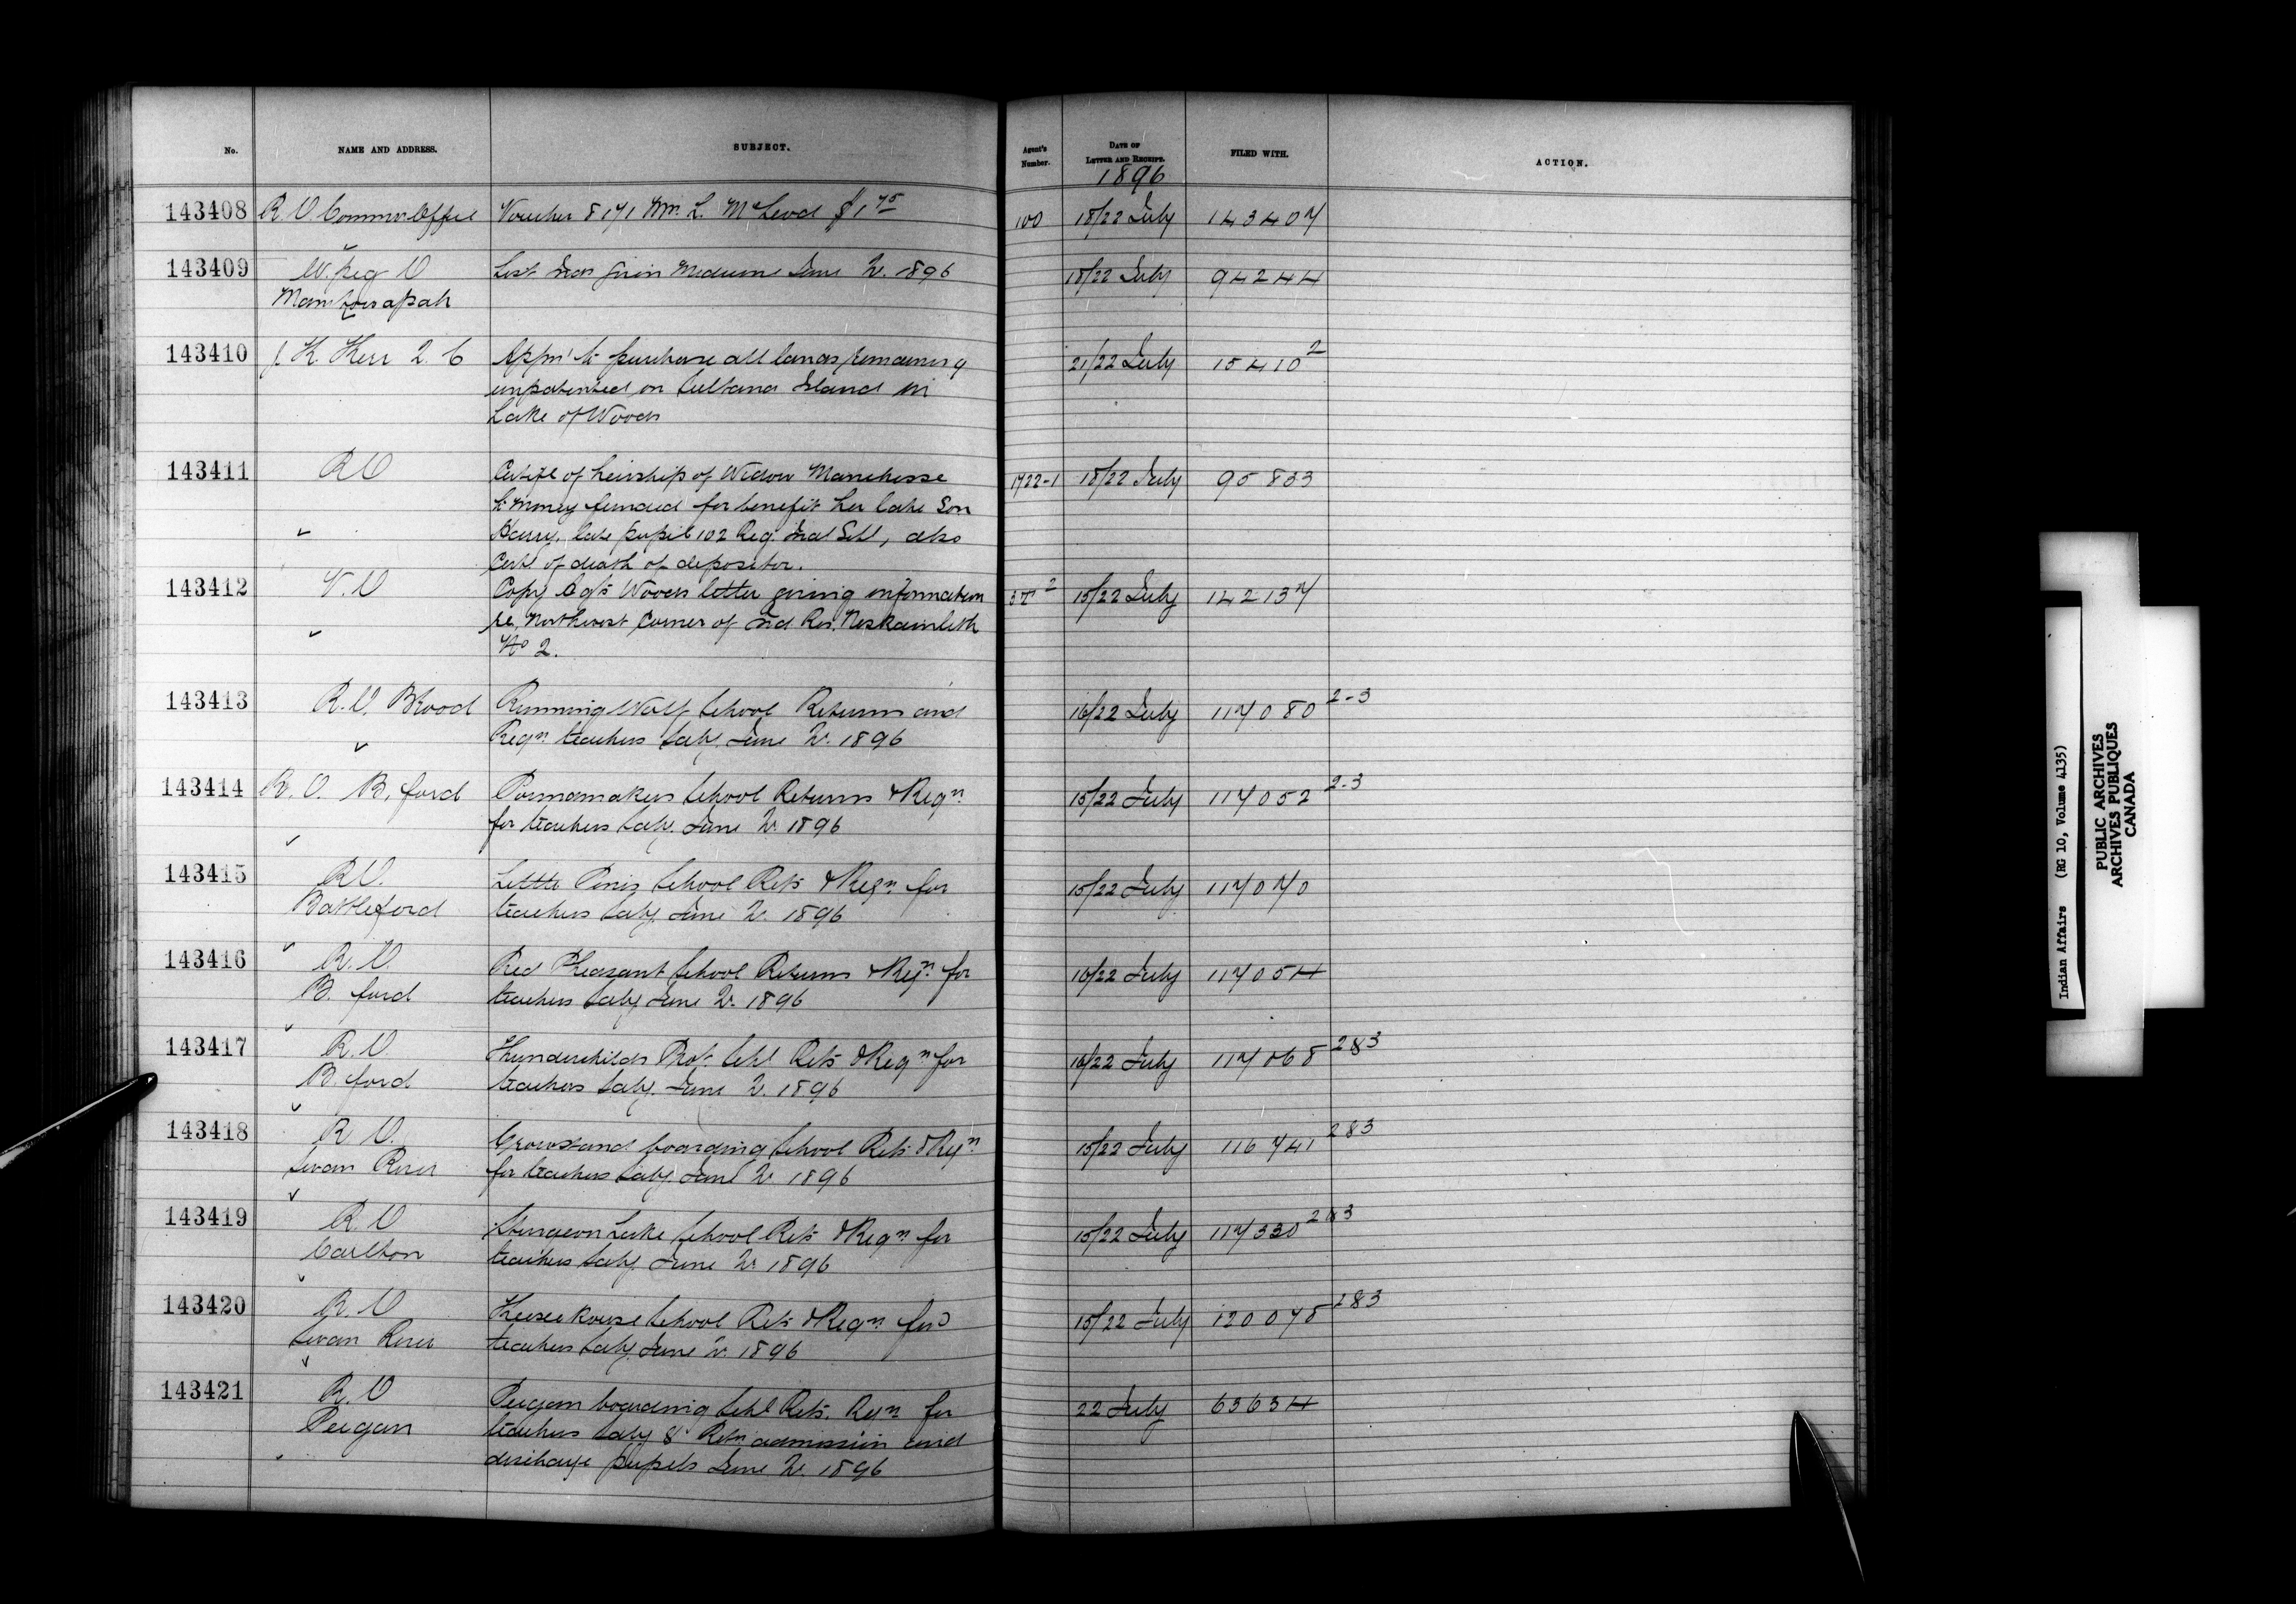 No. NAME AND ADDRESS. SUBJECT. Agent's Number. DATE OF LETTER AND RECEIPT. FILED WITH. ACTION.
1896
143408 R.O. Commrs Office Voucher 8171 Wm. L. McLeod $1 75 100 18/22 July 143407
143409 W.peg O June Qr. 1896 18/22 July 94244
Manitowapah
143410 J. K. Kerr Q.C Appn to purchase all lands remaining 21/22 July 15410 2
unpatented on Sultana Island in
Lake of Woods
143411 R.O of heirship of Widow 1722-1 18/22 July 95833
to money funded for benefit her late Son
Harry, late pupil 102 Reg. Indl Schl, also
Certe of death of depositor.
143412 V.O Copy Agts Woods letter giving information 15/22 July 142137
re. Northwest Corner of Ind Res. Neskainlith
No 2.
143413 R.O. Blood Running Wolf School Returns and 16/22 July 117080 2-3
Reqn teachers Saly. June Qr. 1896
143414 R.O. B.ford Poundmakers School Returns & Reqn 15/22 July 117052 2-3
for teachers Saly. June Qr 1896
143415 R.O. Little Pines School Rets & Reqn for 15/22 July 117070
Battleford teachers Saly. June Qr. 1896
143416 R.O. Red Pheasant School Returns & Reqn for 16/22 July 117054
B. ford teachers Saly June Qr. 1896
143417 R.O. Thunderchilds Prot. Schl Rets & Reqn for 16/22 July 117068 2&3
B. ford teachers Saly. June Qr. 1896
143418 R.O. Crowstand boarding School Rets & Reqn 15/22 July 116741 2&3
Swan River for teachers Saly June Qr 1896
143419 R.O Sturgeon Lake School Rets & Reqn for 15/22 July 117330 2&3
Carlton teachers Saly. June Qr 1896
143420 R.O Keeseekouse School Rets & Reqn for 15/22 July 120075 2&3
Swan River teachers Saly June Qr. 1896
143421 R.O Peigan boarding Schl Rets. Reqn for 22 July 63634
Peigan teachers Saly & Retn admission and
discharge pupils June Qr. 1896
Indian Affairs (RG 10, Volume 4135)
PUBLIC ARCHIVES
ARCHIVES PUBLIQUES
CANADA